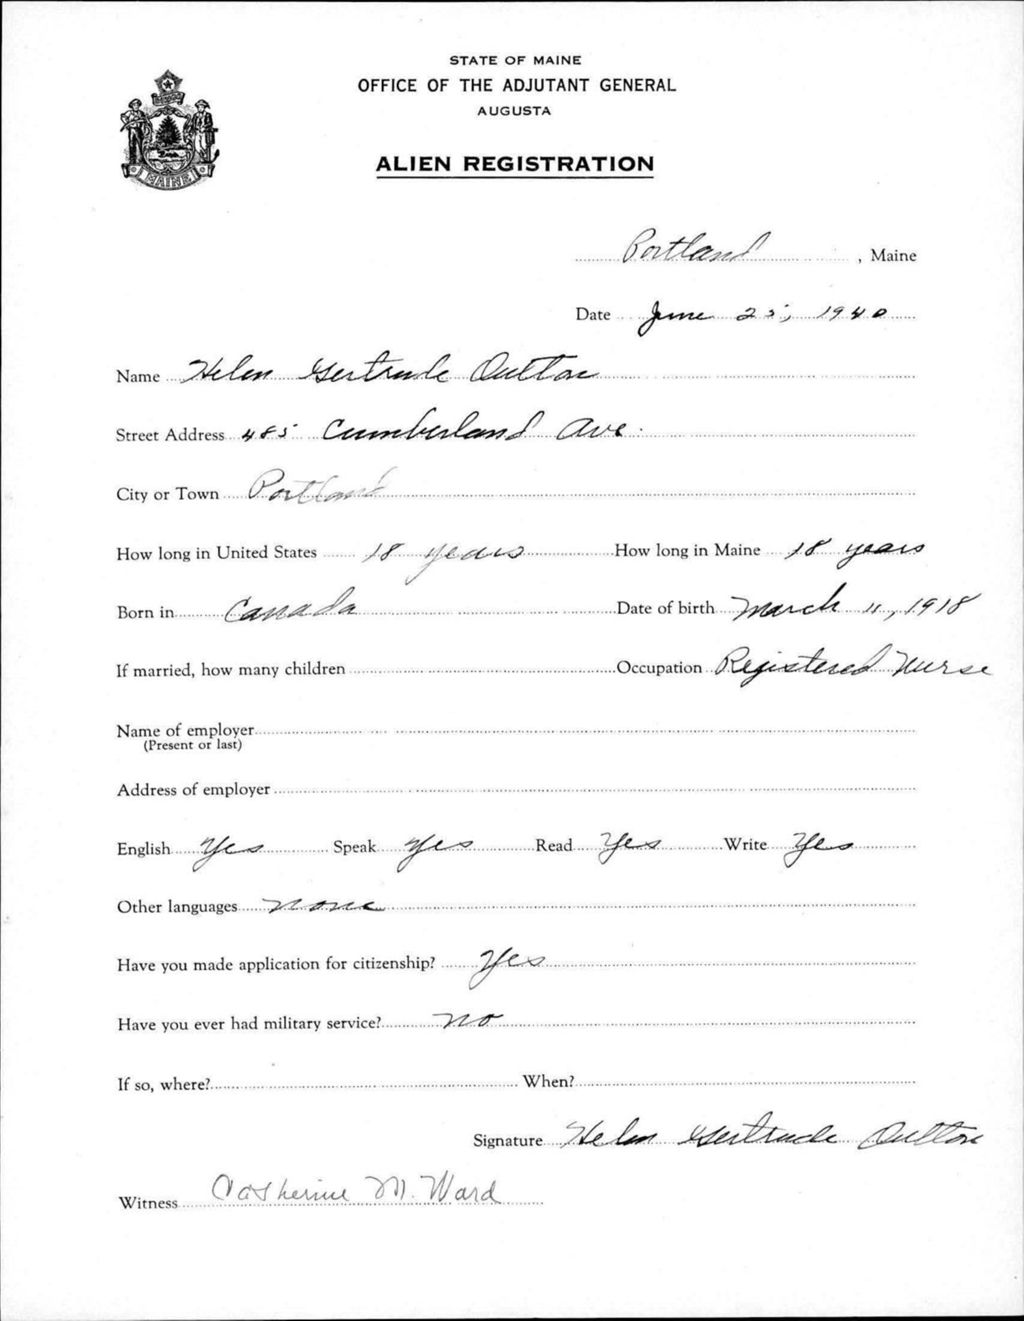 STATE OF MAINE
OFFICE OF THE ADJUTANT GENERAL
AUGUSTA
ALIEN REGISTRATION
MAINE
Portland, Maine
Date June 25, 1940
Name Helen Gertrude Oulton
Street Address 485 Cumberland Ave.
City or Town Portland
How long in United States 18 years How long in Maine 18 years
Born in Canada Date of birth March 11, 1918
If married, how many children Occupation Registered Nurse
Name of employer
(Present or last)
Address of employer
English Yes Speak Yes Read Yes Write Yes
Other languages none
Have you made application for citizenship? Yes
Have you ever had military service? no
If so, where? When?
Signature Helen Gertrude Oulton
Witness Catherine M. Ward